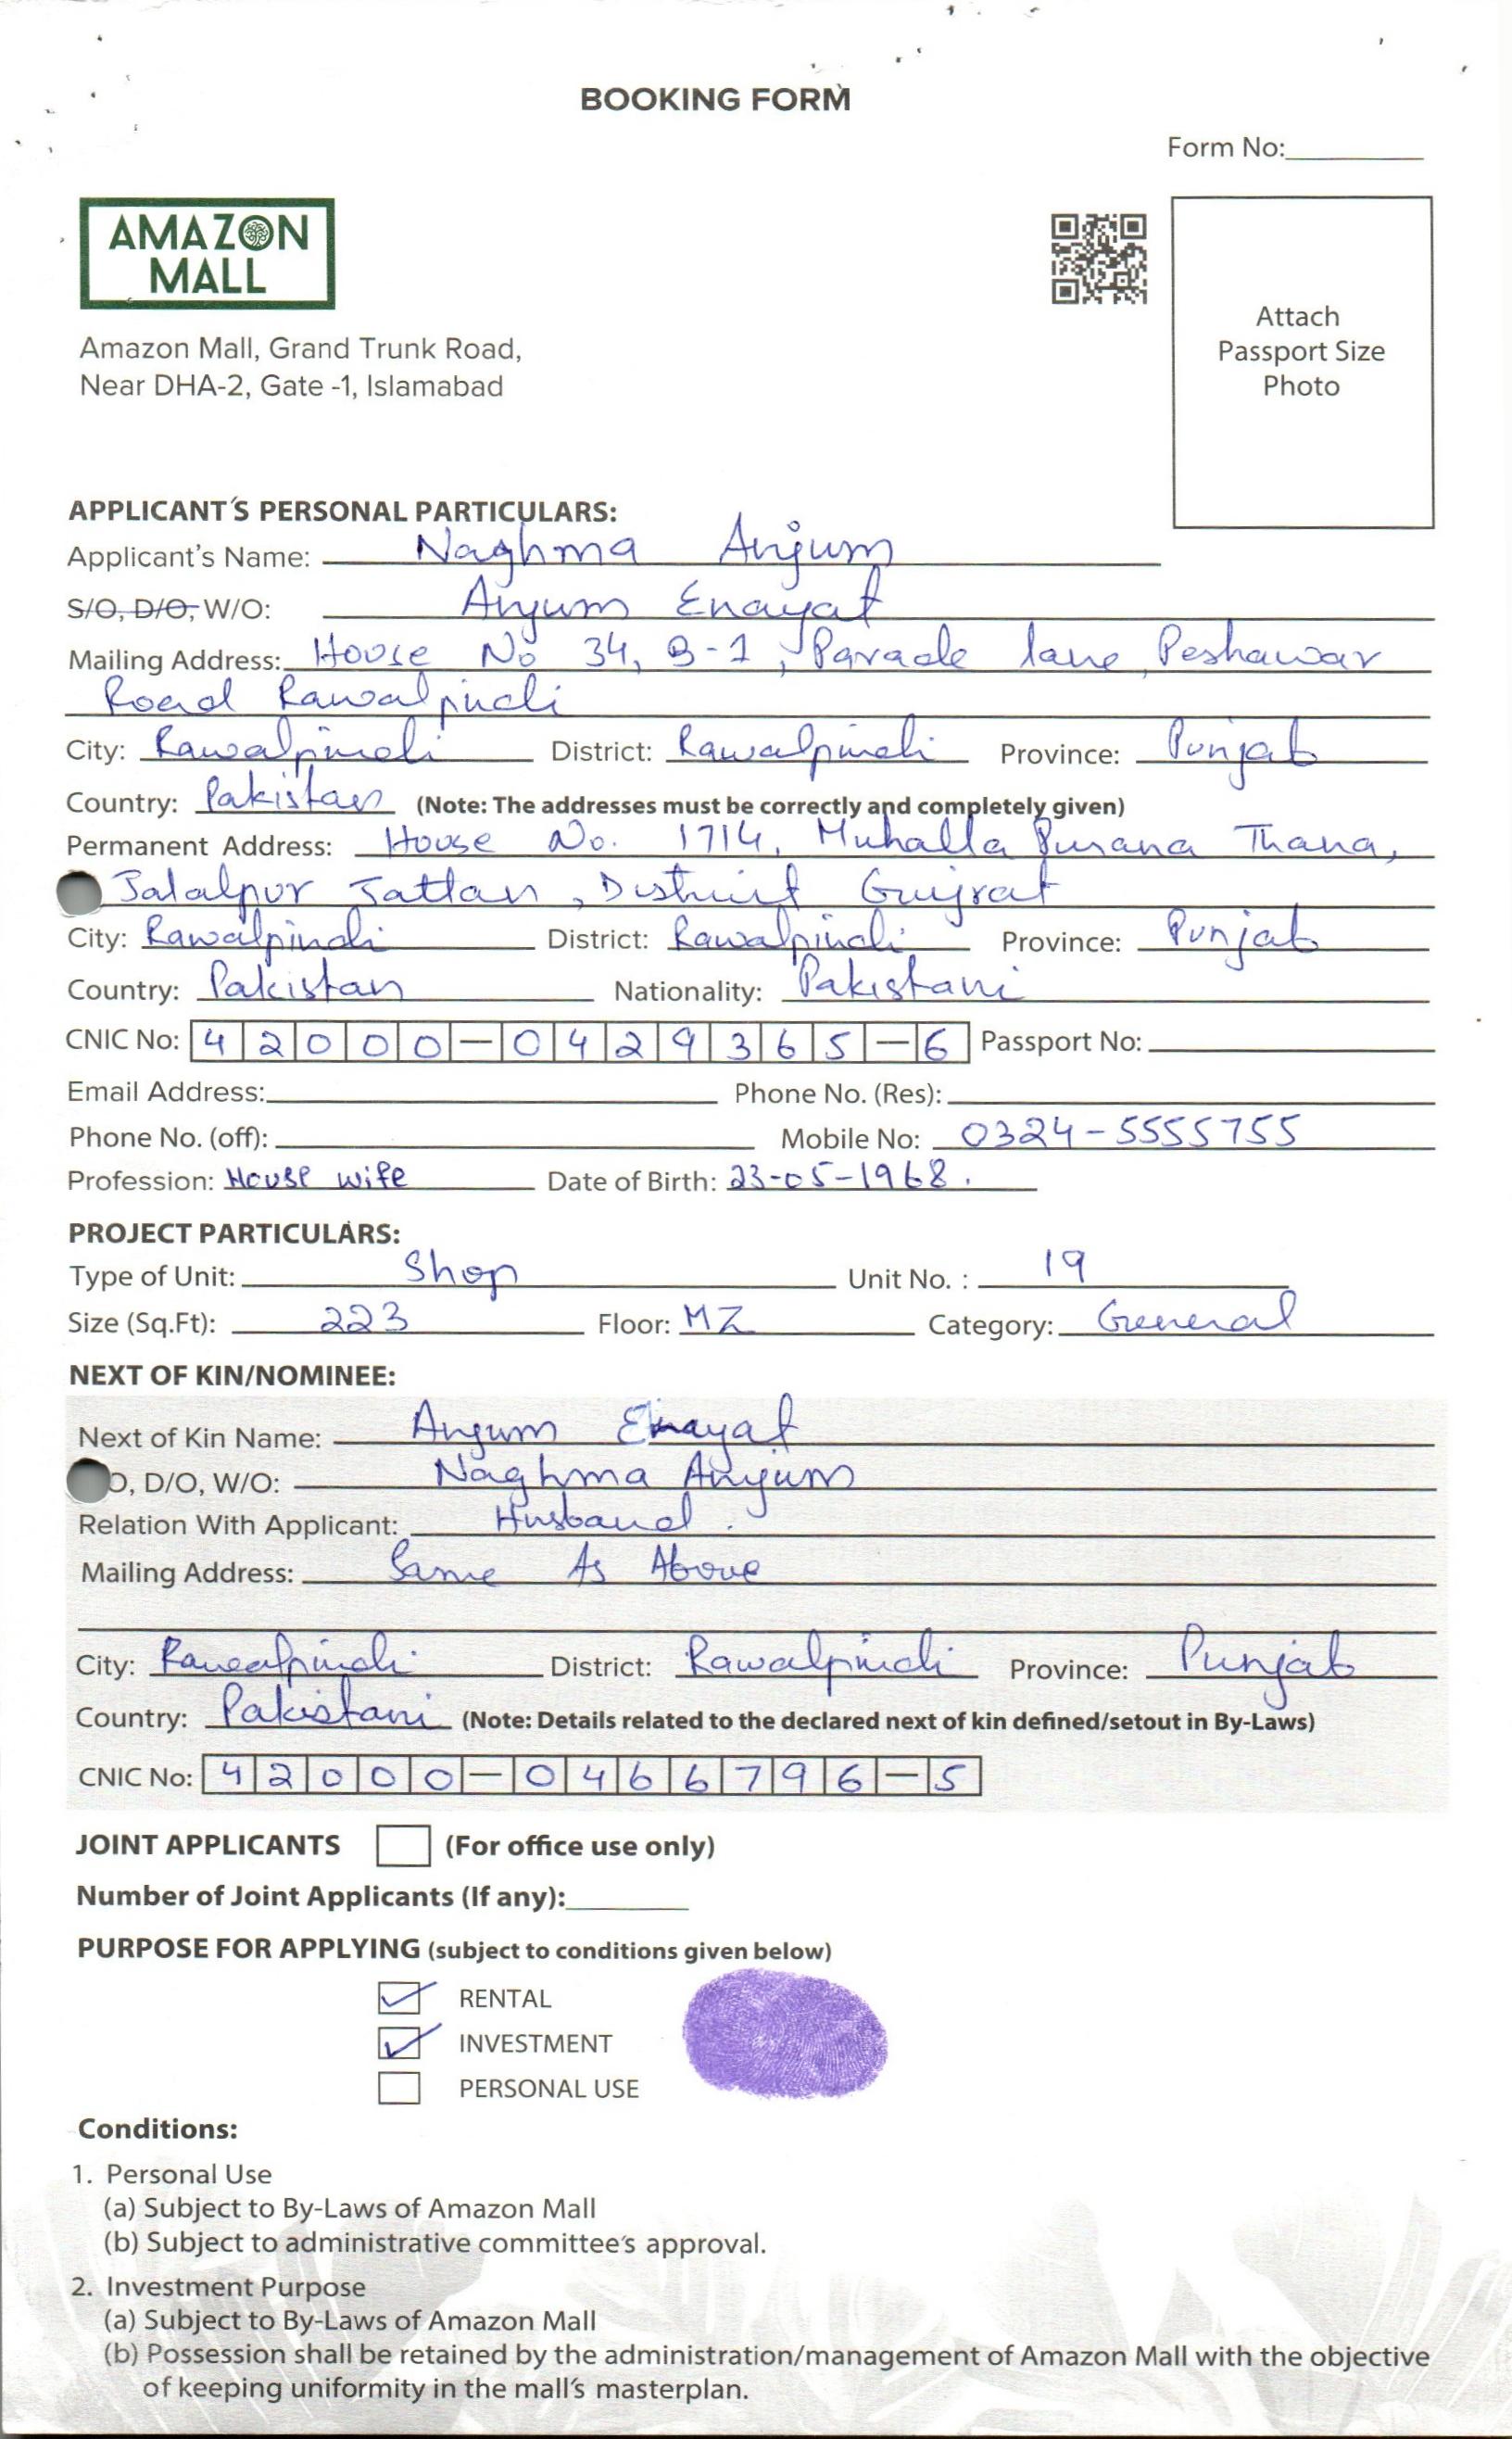 BOOKING FORM
Form No:
AMAZON
MALL
Attach
Passport Size
Photo
Amazon Mall, Grand Trunk Road,
Near DHA-2, Gate -1, Islamabad
APPLICANT'S PERSONAL PARTICULARS:
Applicant's Name: Naghma Anjum
S/O, D/O, W/O: Anjum Enayat
Mailing Address: House No 34, B-1, Parade lane, Peshawar
Road Rawalpindi
City: Rawalpindi District: Rawalpindi Province: Punjab
Country: Pakistan (Note: The addresses must be correctly and completely given)
Permanent Address: House No. 1714, Muhalla Purana Thana,
Jalalpur Jattan, District Gujrat
City: Rawalpindi District: Rawalpindi Province: Punjab
Country: Pakistan Nationality: Pakistani
CNIC No: 42000-0429365-6 Passport No:
Email Address: Phone No. (Res):
Phone No. (off): Mobile No: 0324-5555755
Profession: House wife Date of Birth: 23-05-1968.
PROJECT PARTICULARS:
Type of Unit: Shop Unit No. : 19
Size (Sq.Ft): 223 Floor: MZ Category: General
NEXT OF KIN/NOMINEE:
Next of Kin Name: Anjum Enayat
O, D/O, W/O: Naghma Anjum
Relation With Applicant: Husband.
Mailing Address: Same As Above
City: Rawalpindi District: Rawalpindi Province: Punjab
Country: Pakistani (Note: Details related to the declared next of kin defined/setout in By-Laws)
CNIC No: 42000-0466796-5
JOINT APPLICANTS (For office use only)
Number of Joint Applicants (If any):
PURPOSE FOR APPLYING (subject to conditions given below)
RENTAL
INVESTMENT
PERSONAL USE
Conditions:
1. Personal Use
(a) Subject to By-Laws of Amazon Mall
(b) Subject to administrative committee's approval.
2. Investment Purpose
(a) Subject to By-Laws of Amazon Mall
(b) Possession shall be retained by the administration/management of Amazon Mall with the objective
of keeping uniformity in the mall's masterplan.